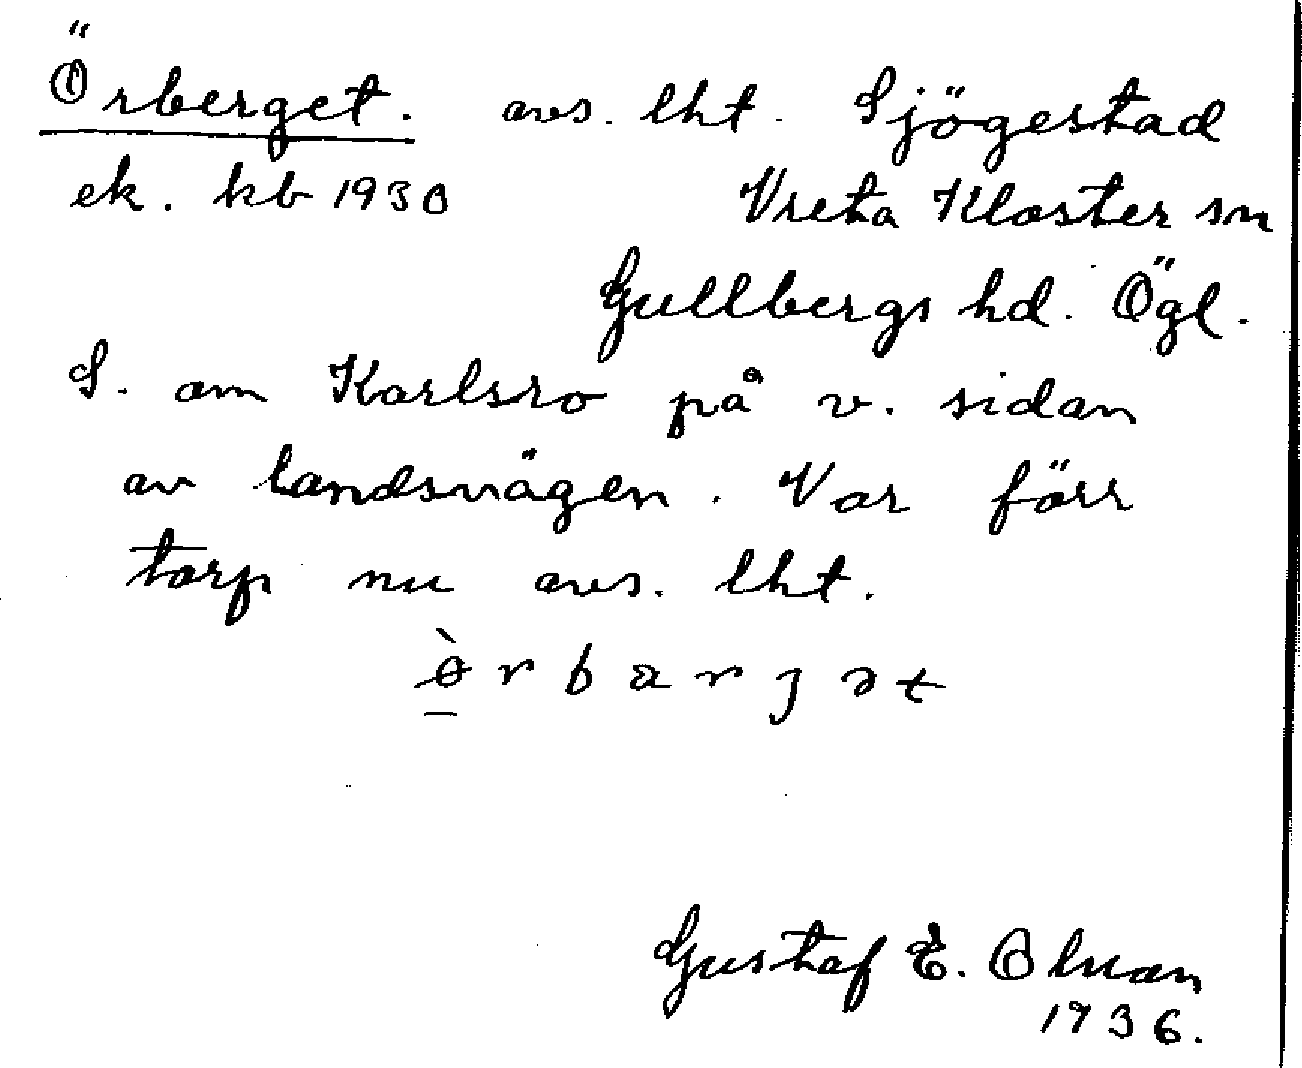 Örberget. avs. lht. Sjögestad
ek. kb 1930 Vreta Kloster sn
Gullbergs hd. Ögl.
S. om Karlsro på v. sidan
av landsvägen. Var förr
torp nu avs. lht.
Gustaf E. Olman
1936.